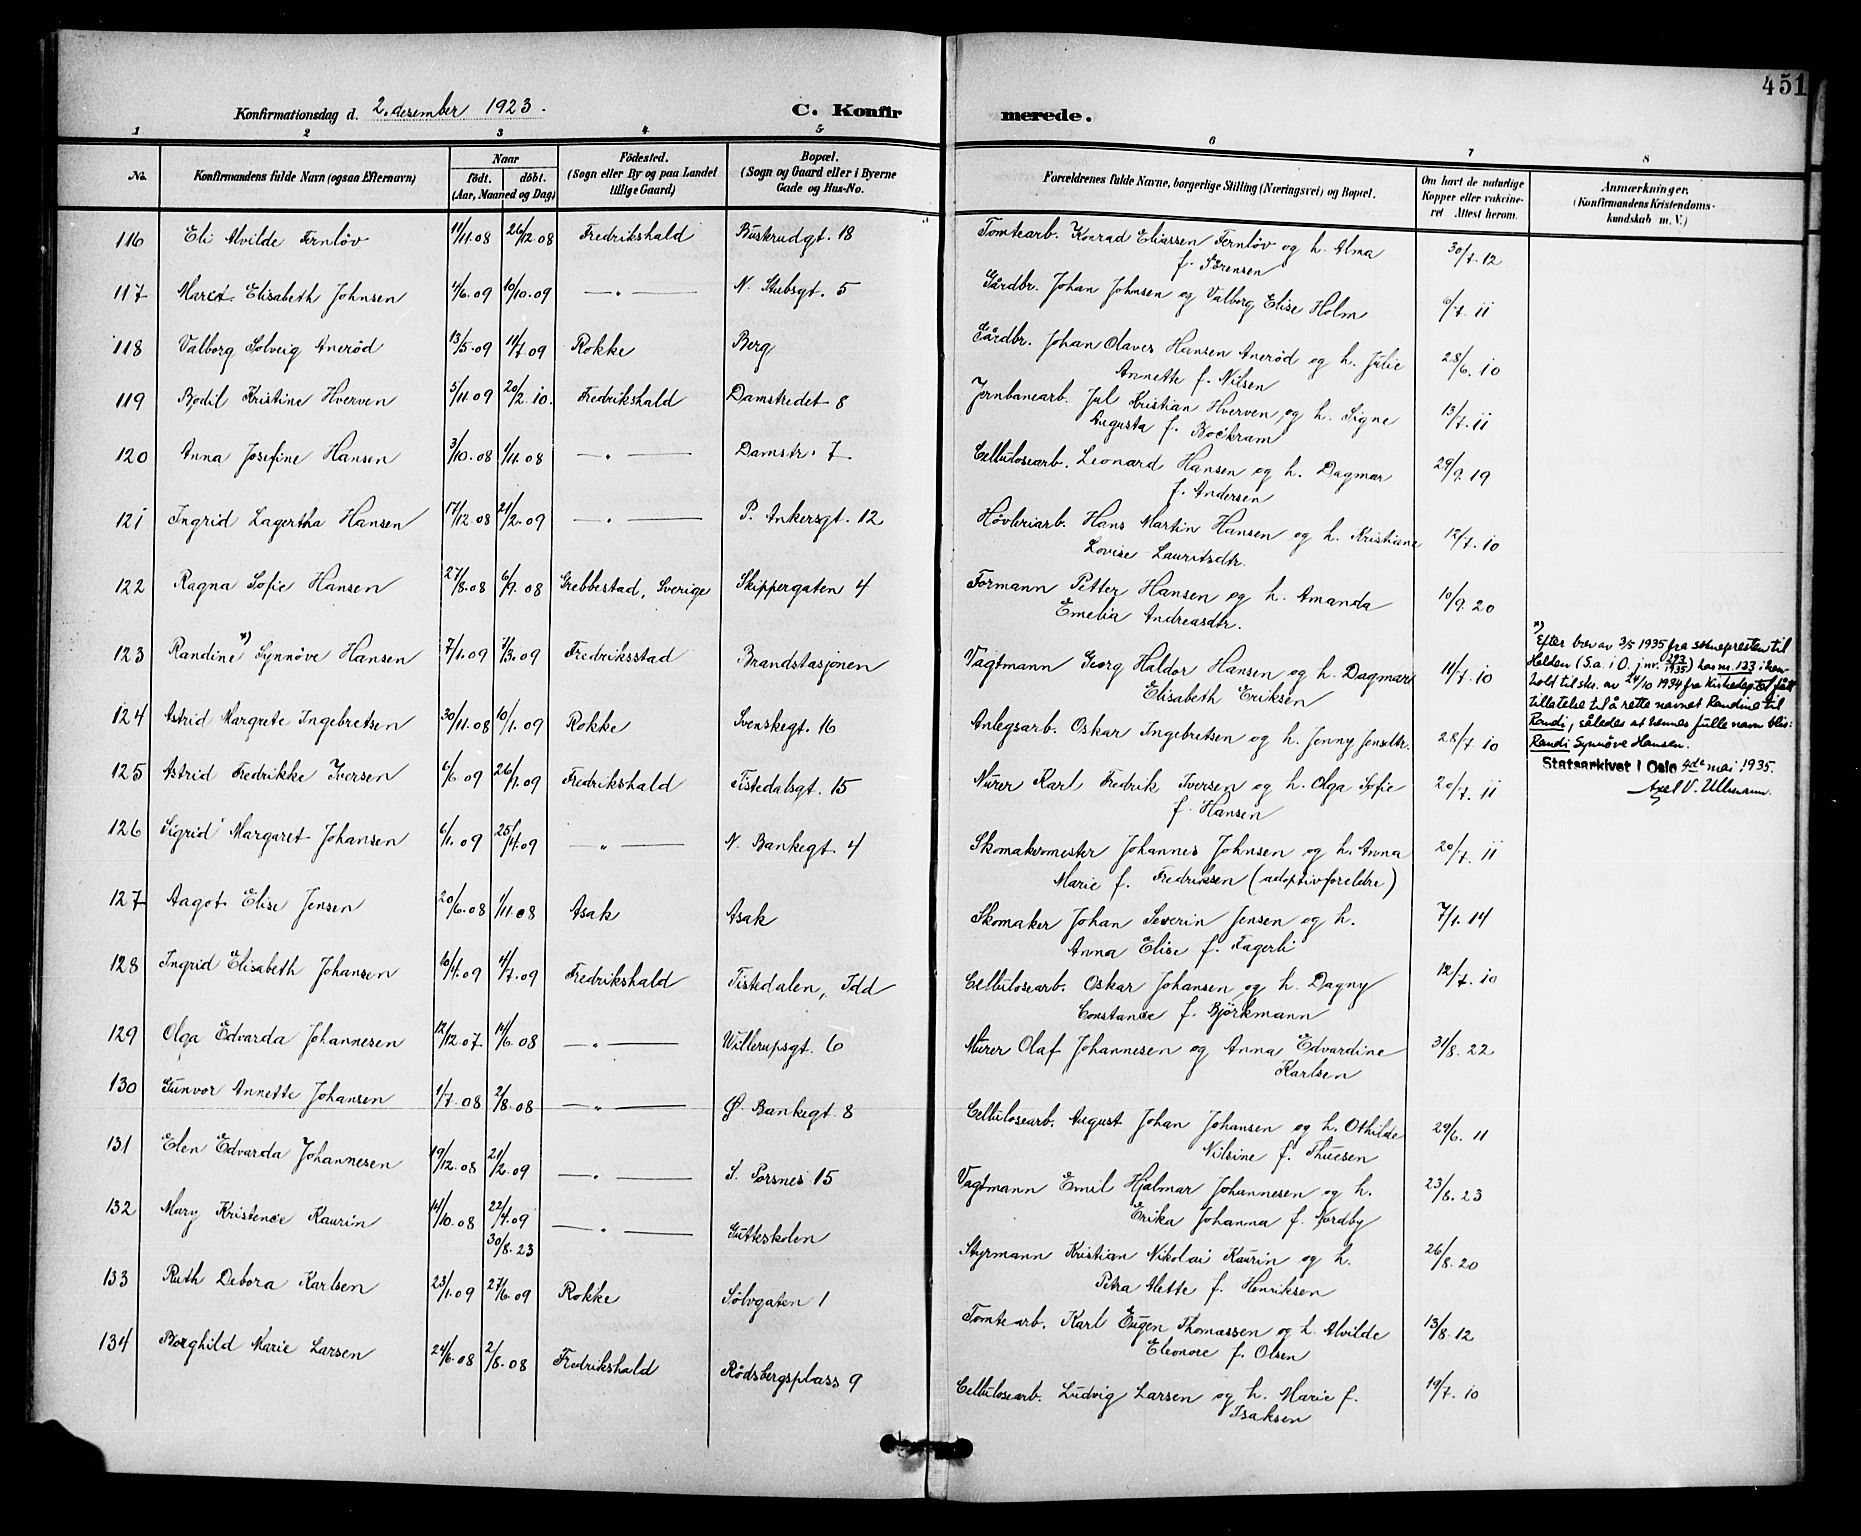 451
Konfirmationsdag d. 2. desember 1923. C. Konfirmerede.
1 2 3 4 5 6 7 8
No. Konfirmandens fulde Navn (ogsaa Efternavn) Naar født. døbt. (Aar, Maaned og Dag) Födested. (Sogn eller By og paa Landet tillige Gaard) Bopæl. (Sogn og Gaard eller i Byerne Gade og Hus-No. Forældrenes fulde Navne, borgerlige Stilling (Næringsvei) og Bopæl. Om havt de naturlige Kopper eller vakcineret Attest herom. Anmærkninger. (Konfirmandens Kristendomskundskab m. V.)
116 Eli Alvilde Fernløv 11/11.08 26/12.08 Fredrikshald Buskrudgt. 18 Tomtearb. Konrad Eliassen Fernløv og h. Alma 30/7.12
f. Sørensen
117 Elisabeth Johnsen 4/6.09 10/10.09 —„— N. Stubsgt. 5 Gårdbr. Johan Johnsen og Valborg Elise Holm 6/7.11
118 Valborg Solveig Anerød 13/5.09 11/7.09 Rokke Berg Gårdbr. Johan Olaves Hansen Anerød og h. Julie 28/6.10
Annette f. Nilsen
119 Bodil Kristine Hverven 5/11.09 20/2.10. Fredrikshald Damstredet 8 Jernbanearb. Jul Kristian Hverven og h. Signe 13/7.11
Augusta f. Bockram
120 Anna Josefine Hansen 3/10.08 1/11.08 —„— Damstr. 7 Cellulosearb. Leonard Hansen og h. Dagmar 29/9.19
f. Andersen
121 Ingrid Lagertha Hansen 17/12.08 21/2.09 —„— P. Ankersgt. 12 Høvleriarb. Hans Martin Hansen og h. Kristiane 12/7.10
Lovise Lauritsdtr.
122 Ragna Sofie Hansen 27/8.08 6/9.08 Grebbestad, Sverige Skippergaten 4 Formann Petter Hansen og h. Amanda 10/9.20
Emelia Andreasdtr.
123 Randine *) Synnøve Hansen 7/1.09 7/3.09 Fredriksstad Brandstasjonen Vagtmann Georg Haldor Hansen og h. Dagmar 11/7.10
Elisabeth Eriksen
*) Efter brev av 3/5 1935 fra soknepresten til
Halden (S.a. i O. jnr. 292/1935) har nr. 123 i hen-
hold til skr. av 24/10 1934 fra Kirkedep.tet fått
tillatelse til å rette navnet Randine til
Randi, således at hennes fulle navn blir:
Randi Synnøve Hansen.
Statsarkivet i Oslo 4de mai 1935.
Axel V. Ullmann.
124 Astrid Margrete Ingebretsen 30/11.08 10/1.09 Rokke Svenskegt. 16 Anlegsarb. Oskar Ingebretsen og h. Jenny Jensdtr. 28/7.10
125 Astrid Fredrikke Iversen 6/6.09 26/1.09 Fredrikshald Tistedalsgt. 15 Murer Karl Fredrik Iversen og h. Olga Sofie 20/7.11
f. Hansen
126 Sigrid Margaret Johansen 6/1.09 25/4.09 —„— N. Bankegt. 4 Skomakermester Johannes Johnsen og h. Anna 20/7.11
Marie f. Fredriksen (adoptivforeldre)
127 Aagot Elise Jensen 20/6.08 1/11.08 Asak Asak Skomaker Johan Severin Jensen og h. 7/1.14
Anna Elise f. Fagerli
128 Ingrid Elisabeth Johansen 10/4.09 4/7.09 Fredrikshald Tistedalen, Idd Cellulosearb. Oskar Johansen og h. Dagny 12/7.10
Constance f. Björkmann
129 Olga Edvarda Johannesen 12/12.07 14/6.08 —„— Willerupsgt. 6 Murer Olaf Johannesen og Anna Edvardine 31/8.22
Karlsen
130 Gunvor Annette Johansen 1/7.08 2/8.08 —„— Ø. Bankegt. 8 Cellulosearb. August Johan Johansen og h. Othilde 29/6.11
Nilsine f. Thuesen
131 Elen Edvarda Johannesen 19/12.08 21/2.09 —„— S. Porsnes 15 Vagtmann Emil Hjalmar Johannesen og h. 23/8.23
Erika Johanna f. Nordby
132 Mary Kristence Kaurin 14/10.08 22/4.09 —„— Gutteskolen Styrmann Kristian Nikolai Kaurin og h. 26/8.20
30/8.23 Petra Alette f. Henriksen
133 Ruth Debora Karlsen 23/1.09 27/6.09 Rokke Sølvgaten 1 Tomtearb. Karl Eugen Thomassen og h. Alvilde 13/8.12
Eleonore f. Olsen
134 Borghild Marie Larsen 24/6.08 2/8.08 Fredrikshald Rødsbergsplass 9 Cellulosearb. Ludvig Larsen og h. Marie f. 19/7.10
Isaksen